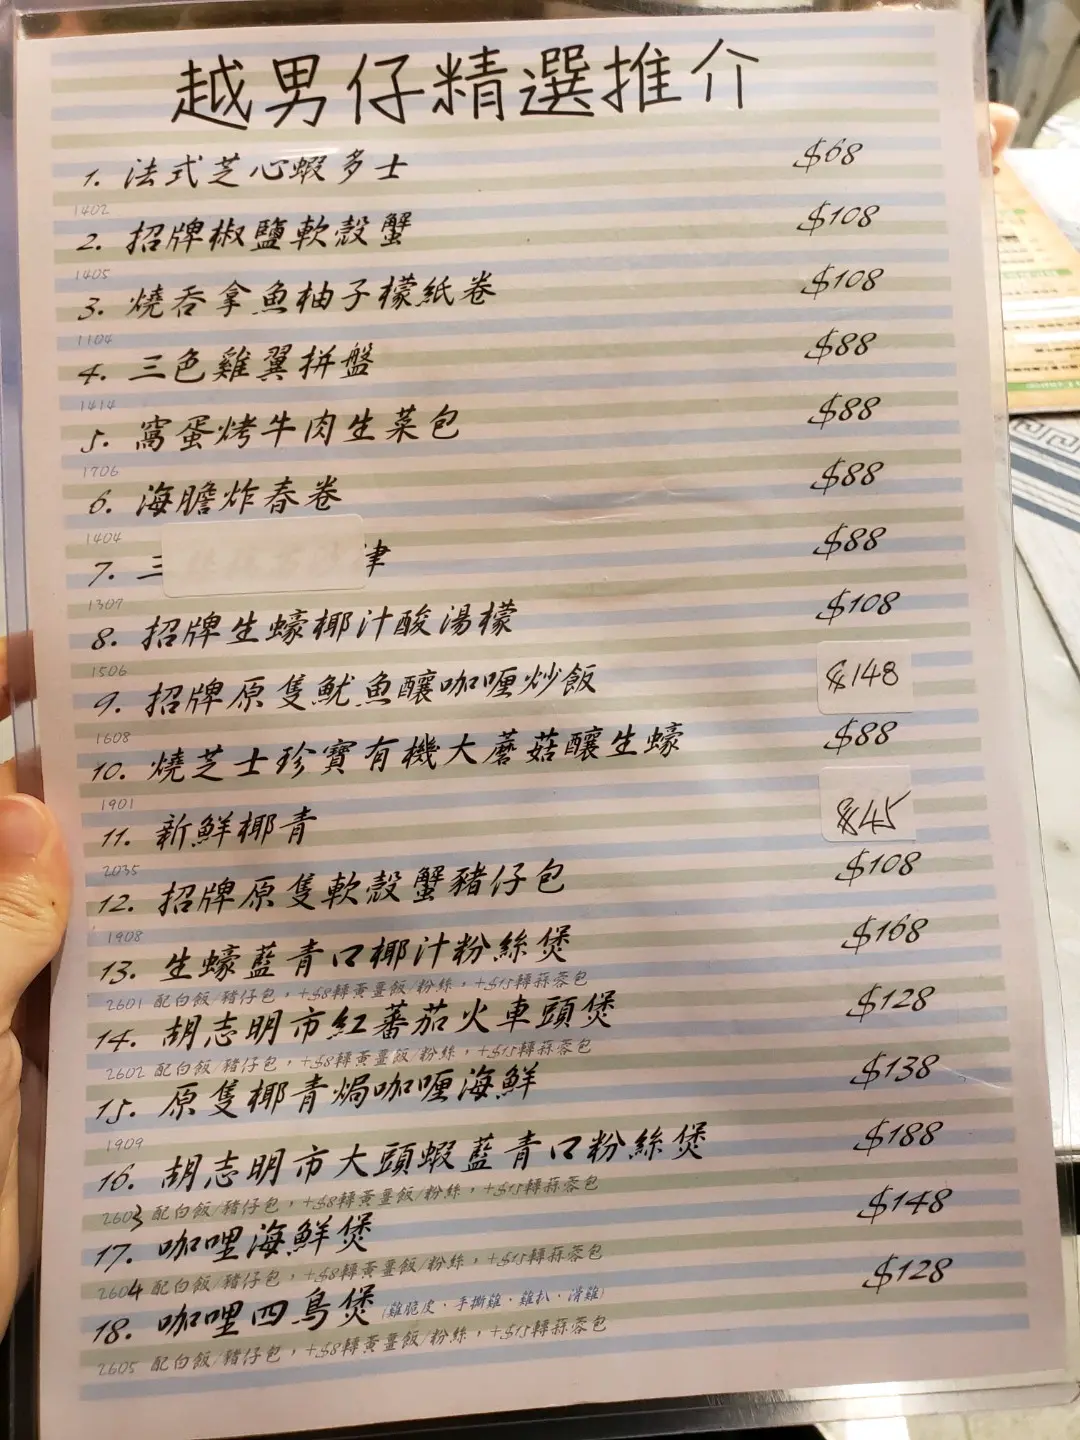 越男仔精選推介
1. 法式芝心蝦多士 $68
1402
2. 招牌椒鹽軟殼蟹 $108
1405
3. 燒吞拿魚柚子檬紙卷 $108
1104
4. 三色雞翼拼盤 $88
1414
5. 窩蛋烤牛肉生菜包 $88
1706
6. 海膽炸春卷 $88
1404
7. 三 津 $88
1307
8. 招牌生蠔椰汁酸湯檬 $108
1506
9. 招牌原隻魷魚釀咖喱炒飯 $148
1608
10. 燒芝士珍寶有機大蘑菇釀生蠔 $88
1901
11. 新鮮椰青 $45
2035
12. 招牌原隻軟殼蟹豬仔包 $108
1908
13. 生蠔藍青口椰汁粉絲煲 $168
2601 配白飯/豬仔包，+$8轉黃薑飯/粉絲，+$15轉蒜蓉包
14. 胡志明市紅蕃茄火車頭煲 $128
2602 配白飯/豬仔包，+$8轉黃薑飯/粉絲，+$15轉蒜蓉包
15. 原隻椰青焗咖喱海鮮 $138
1909
16. 胡志明市大頭蝦藍青口粉絲煲 $188
2603 配白飯/豬仔包，+$8轉黃薑飯/粉絲，+$15轉蒜蓉包
17. 咖哩海鮮煲 $148
2604 配白飯/豬仔包，+$8轉黃薑飯/粉絲，+$15轉蒜蓉包
18. 咖哩四鳥煲 (雞脆皮．手撕雞．雞扒．滑雞) $128
2605 配白飯/豬仔包，+$8轉黃薑飯/粉絲，+$15轉蒜蓉包